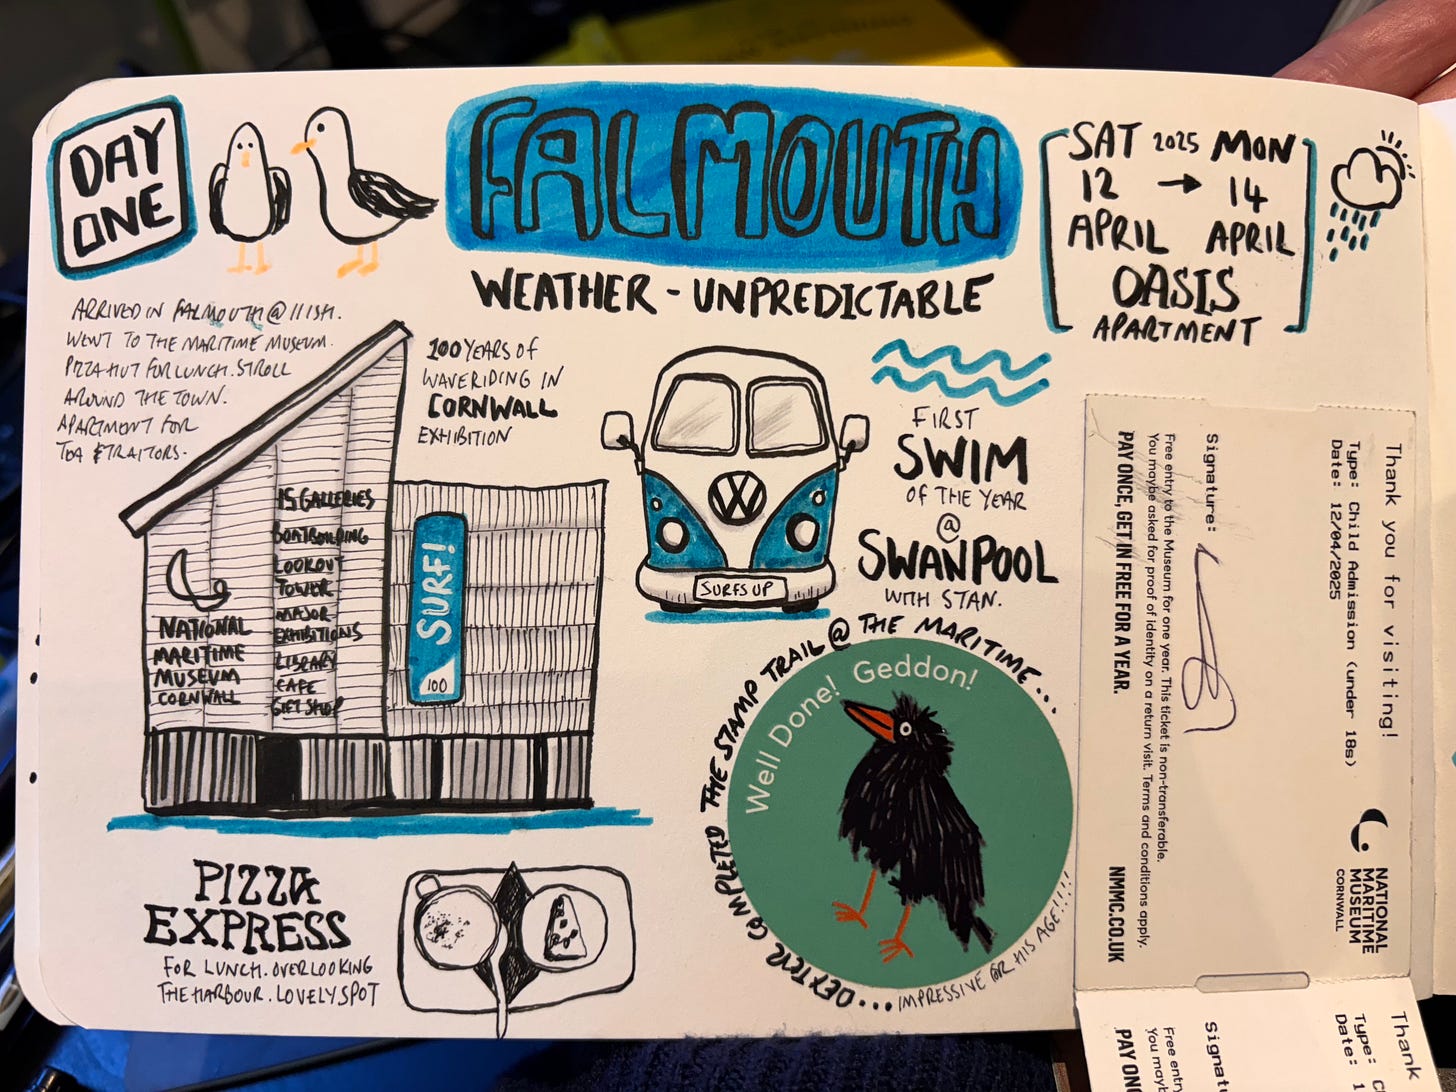 DAY
ONE
FALMOUTH
WEATHER - UNPREDICTABLE
SAT 2025 MON
12 → 14
APRIL APRIL
OASIS
APARTMENT
ARRIVED IN FALMOUTH @ 11ISH.
WENT TO THE MARITIME MUSEUM.
PIZZA HUT FOR LUNCH. STROLL
AROUND THE TOWN.
APARTMENT FOR
TEA & TRAITORS.
100 YEARS OF
WAVERIDING IN
CORNWALL
EXHIBITION
15 GALLERIES
BOATBUILDING
LOOKOUT
TOWER
MAJOR
EXHIBITIONS
LIBRARY
CAFE
GIFT SHOP
NATIONAL
MARITIME
MUSEUM
CORNWALL
SURF!
100
SURFS UP
FIRST
SWIM
OF THE YEAR
@
SWANPOOL
WITH STAN.
DEXTER COMPLETED THE STAMP TRAIL @ THE MARITIME...
...IMPRESSIVE FOR HIS AGE!!!!
Well Done! Geddon!
PIZZA
EXPRESS
FOR LUNCH. OVERLOOKING
THE HARBOUR. LOVELY SPOT
Thank you for visiting!
Type: Child Admission (under 18s)
Date: 12/04/2025
Signature:
Free entry to the Museum for one year. This ticket is non-transferable.
You maybe asked for proof of identity on a return visit. Terms and conditions apply.
PAY ONCE, GET IN FREE FOR A YEAR.
NMMC.CO.UK
NATIONAL
MARITIME
MUSEUM
CORNWALL
Thank
Type: C
Date:
Signatu
Free entry
You mayb
PAY ONC